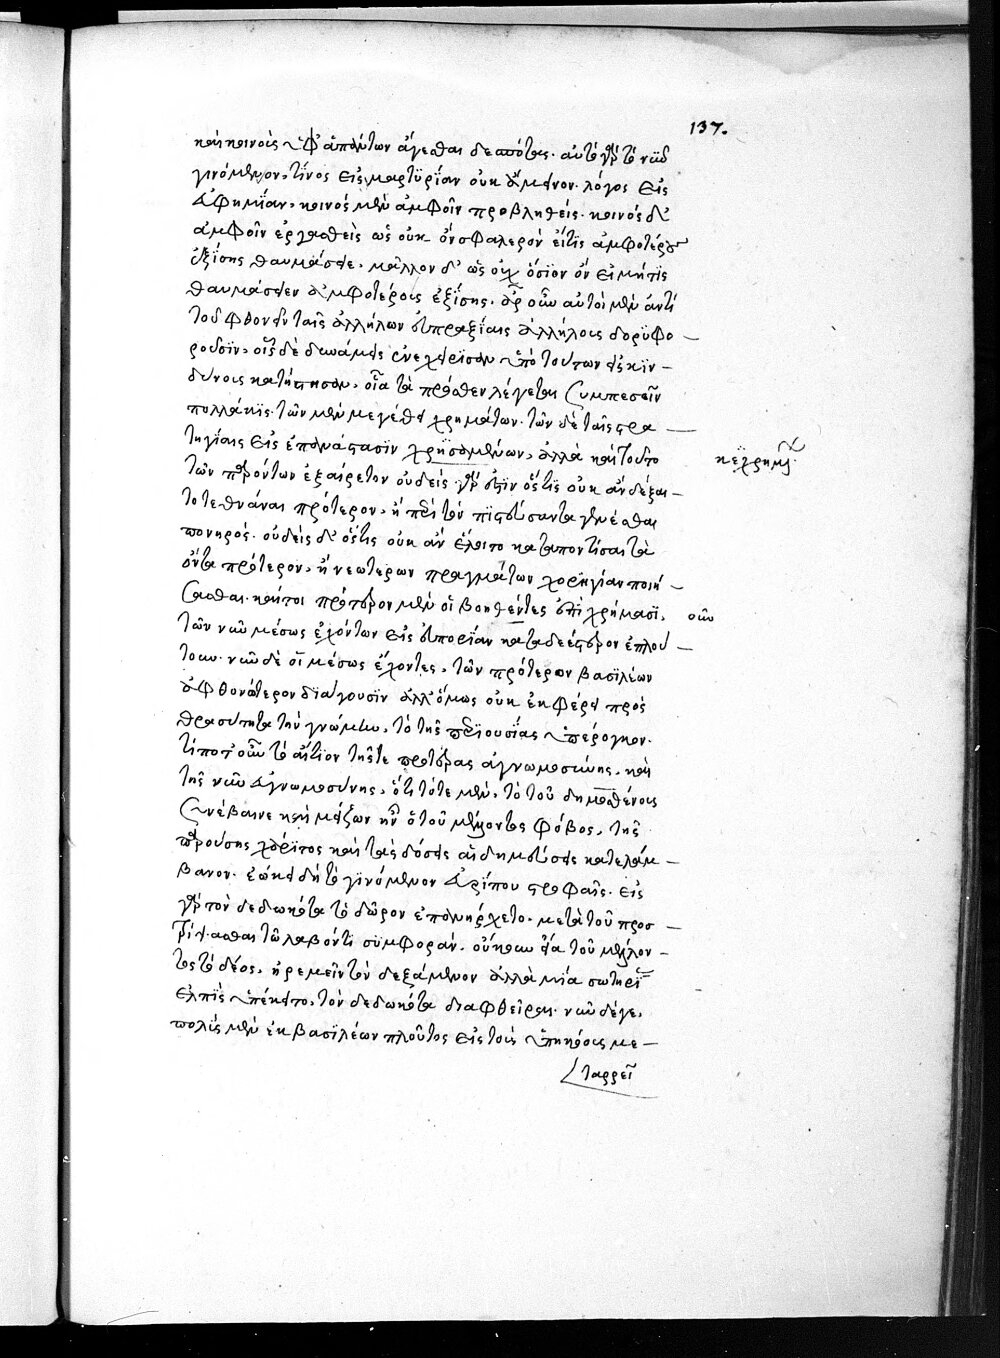 137.
καὶ κοινοὺς ὑφ' ἁπάντων ἄγεσθαι δεσπότας. αὐτὸ γὰρ τὸ νῦν
γινόμενον, τίνος εἰς μαρτυρίαν οὐκ ἄμεινον. λόγος εἷς
εὐφημίαν, κοινὸς μὲν ἀμφοῖν προβληθείς. κοινὸς δ'
ἀμφοῖν ἐργασθεὶς ὡς οὐκ ὂν σφαλερὸν εἴτις ἀμφοτέρους
ἐξίσης θαυμάσειε. μᾶλλον δ' ὡς οὐχ ὅσιον ὂν εἰ μήτις
θαυμάσειεν ἀμφοτέρους ἐξίσης. ἆρ' οὖν αὐτοὶ μὲν ἀντὶ
τοῦ φθονεῖν ταῖς ἀλλήλων εὐπραξίαις ἀλλήλους δορυφο
ροῦσιν, οἷς δὲ δυνάμεις ἐνεχείρισαν ὑπὸ τούτων εἰς κιν
δύνους κατήπησαν, οἷα τὰ πρόσθεν λέγεται συμπεσεῖν
πολλάκις. τῶν μὲν μεγέθει χρημάτων. τῶν δὲ ταῖς στρα
τηγίαις εἰς ἐπανάστασιν χρησομένων, ἀλλὰ καὶ τοῦτο
κεχρημένων
τῶν παρόντων ἐξαίρετον οὐδεὶς γάρ ἐστιν ὅστις οὐκ ἂν δέξαι
το τεθνάναι πρότερον, ἢ περὶ τὸν πιστεύσαντα γενέσθαι
πονηρός. οὐδεὶς δ' ὅστις οὐκ ἂν ἕλοιτο καταποντίσαι τὰ
ὄντα πρότερον, ἢ νεωτέρων πραγμάτων χορηγίαν ποιή
σασθαι. καίτοι πρότερον μὲν οἱ βρίθοντες ἐπὶ χρήμασι,
οὖν
τῶν νῦν μέσως ἐχόντων εἰς εὐπορίαν καταδεέστερον ἐπλού
τουν. νῦν δὲ οἱ μέσως ἔχοντες, τῶν πρότερον βασιλέων
ἀφθονώτερον διάγουσιν ἀλλ' ὅμως οὐκ ἐκφέρει πρὸς
θρασύτητα τὴν γνώμην, τὸ τῆς περιουσίας ὑπέρογκον.
τί ποτ' οὖν τὸ αἴτιον τῆς τε προτέρας ἀγνωμοσύνης, καὶ
τῆς νῦν εὐγνωμοσύνης, ὅτι τότε μὲν, τὸ τοῦ δημοσθένους
συνέβαινε καὶ μείζων ἦν ὁ τοῦ μέλλοντος φόβος, τῆς
παρούσης χάριτος καὶ τὰς δόσεις αἱ δημεύσεις κατελάμ
βανον. ἐῴκει δὴ τὸ γινόμενον εὐρίπου στροφαῖς. εἰς
γὰρ τὸν δεδωκότα τὸ δῶρον ἐπανήρχετο. μετὰ τοῦ προσ
τρίψασθαι τῷ λαβόντι συμφοράν. οὔκουν εἴα τοῦ μέλλον
τος τὸ δέος, ἠρεμεῖν τὸν δεξάμενον ἀλλὰ μία σωτηρίας
ἐλπὶς ὑπέκειτο, τὸν δεδωκότα διαφθεῖραι. νῦν δέ γε,
πολὺς μὲν ἐκ βασιλέων πλοῦτος εἰς τοὺς ὑπηκόους με
ταρρεῖ